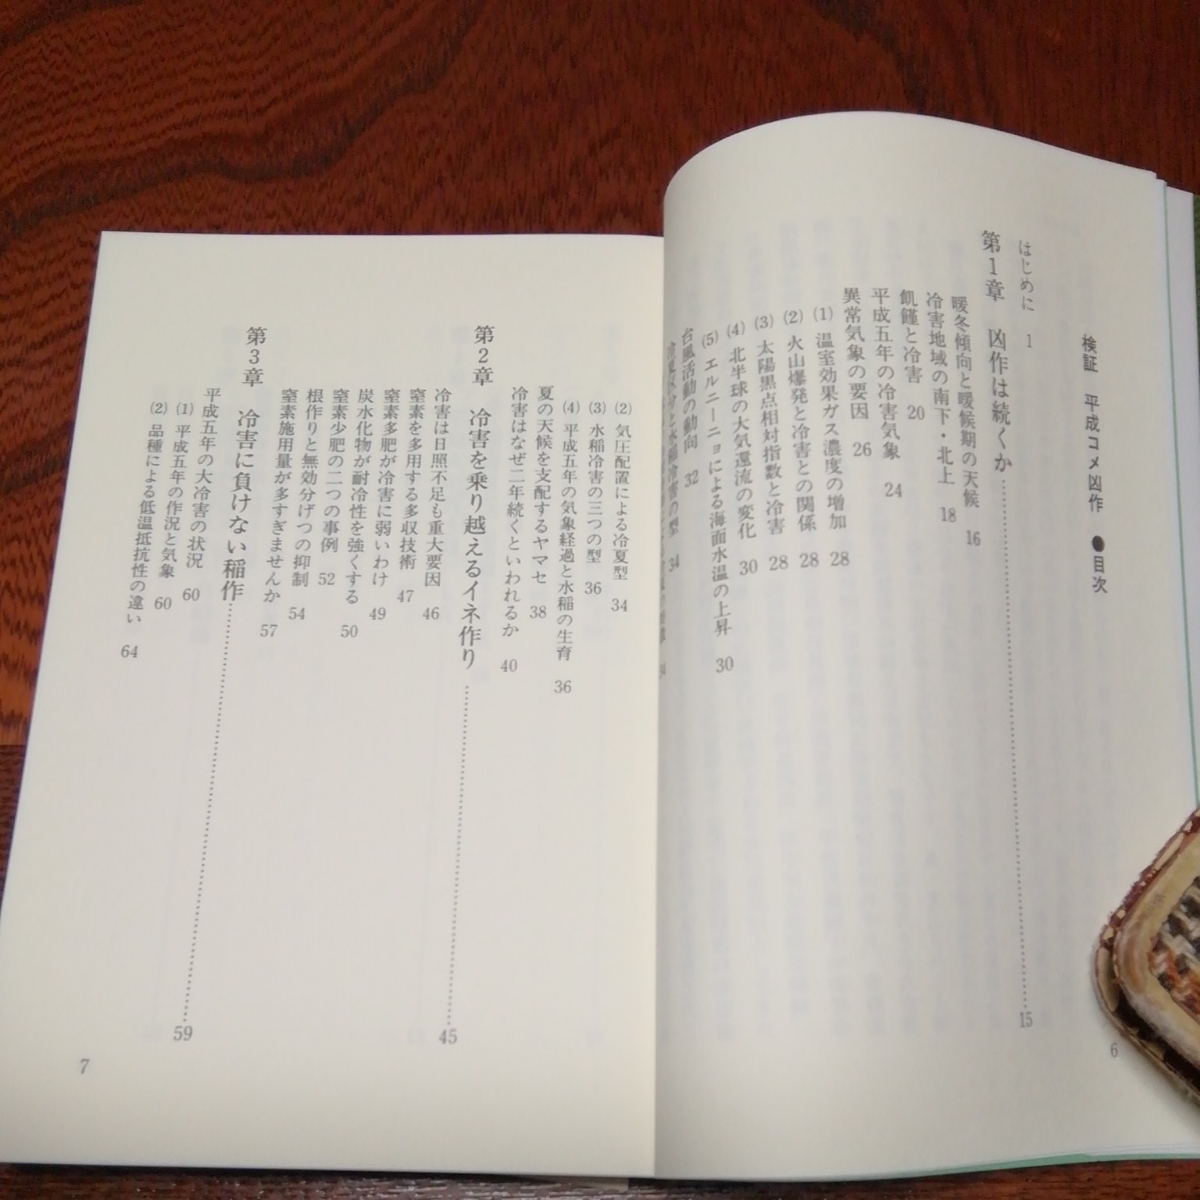 検証 平成コメ凶作 ●目次
はじめに 1
第1章 凶作は続くか 15
暖冬傾向と暖候期の天候 16
冷害地域の南下・北上 18
飢饉と冷害 20
平成五年の冷害気象 24
異常気象の要因 26
(1) 温室効果ガス濃度の増加 28
(2) 火山爆発と冷害との関係 28
(3) 太陽黒点相対指数と冷害 28
(4) 北半球の大気還流の変化 30
(5) エルニーニョによる海面水温の上昇 30
台風活動の動向 32
冷夏区分と水稲冷害の型 34
34
6
(2) 気圧配置による冷夏型 34
(3) 水稲冷害の三つの型 36
(4) 平成五年の気象経過と水稲の生育 36
夏の天候を支配するヤマセ 38
冷害はなぜ二年続くといわれるか 40
第2章 冷害を乗り越えるイネ作り 45
冷害は日照不足も重大要因 46
窒素を多用する多収技術 47
窒素多肥が冷害に弱いわけ 49
炭水化物が耐冷性を強くする 50
窒素少肥の二つの事例 52
根作りと無効分げつの抑制 54
窒素施用量が多すぎませんか 57
第3章 冷害に負けない稲作 59
平成五年の大冷害の状況 60
(1) 平成五年の作況と気象 60
(2) 品種による低温抵抗性の違い 64
7